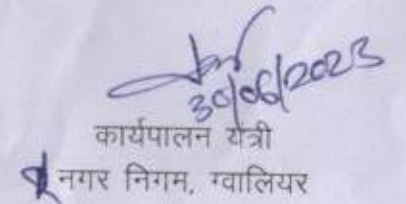 30/06/2023
कार्यपालन यंत्री
नगर निगम, ग्वालियर